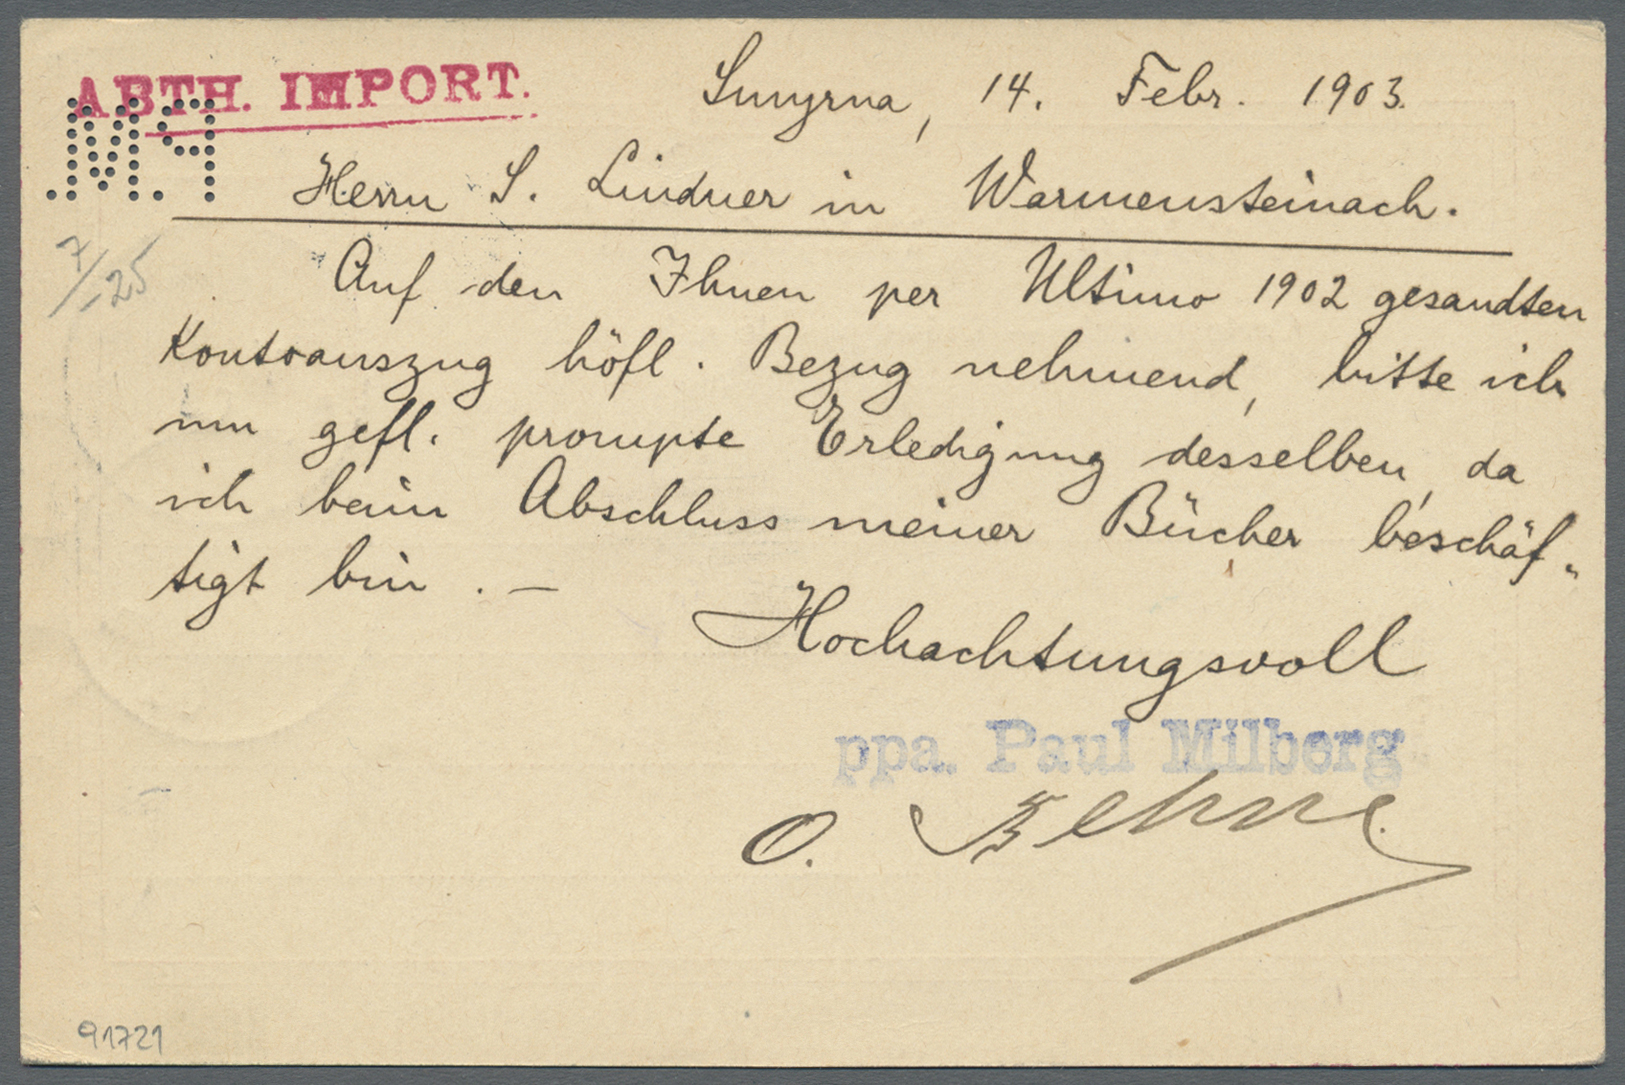 ABTH. IMPORT.
Smyrna, 14. Febr. 1903.
Herrn S. Lindner in Warmensteinach.
7/25
Auf den Ihnen per Ultimo 1902 gesandten
Kontoauszug höfl. Bezug nehmend, bitte ich
um gefl. prompte Erledigung desselben, da
ich beim Abschluss meiner Bücher beschäf-
tigt bin. —
Hochachtungsvoll
ppa. Paul Milberg
O. Behne.
91721